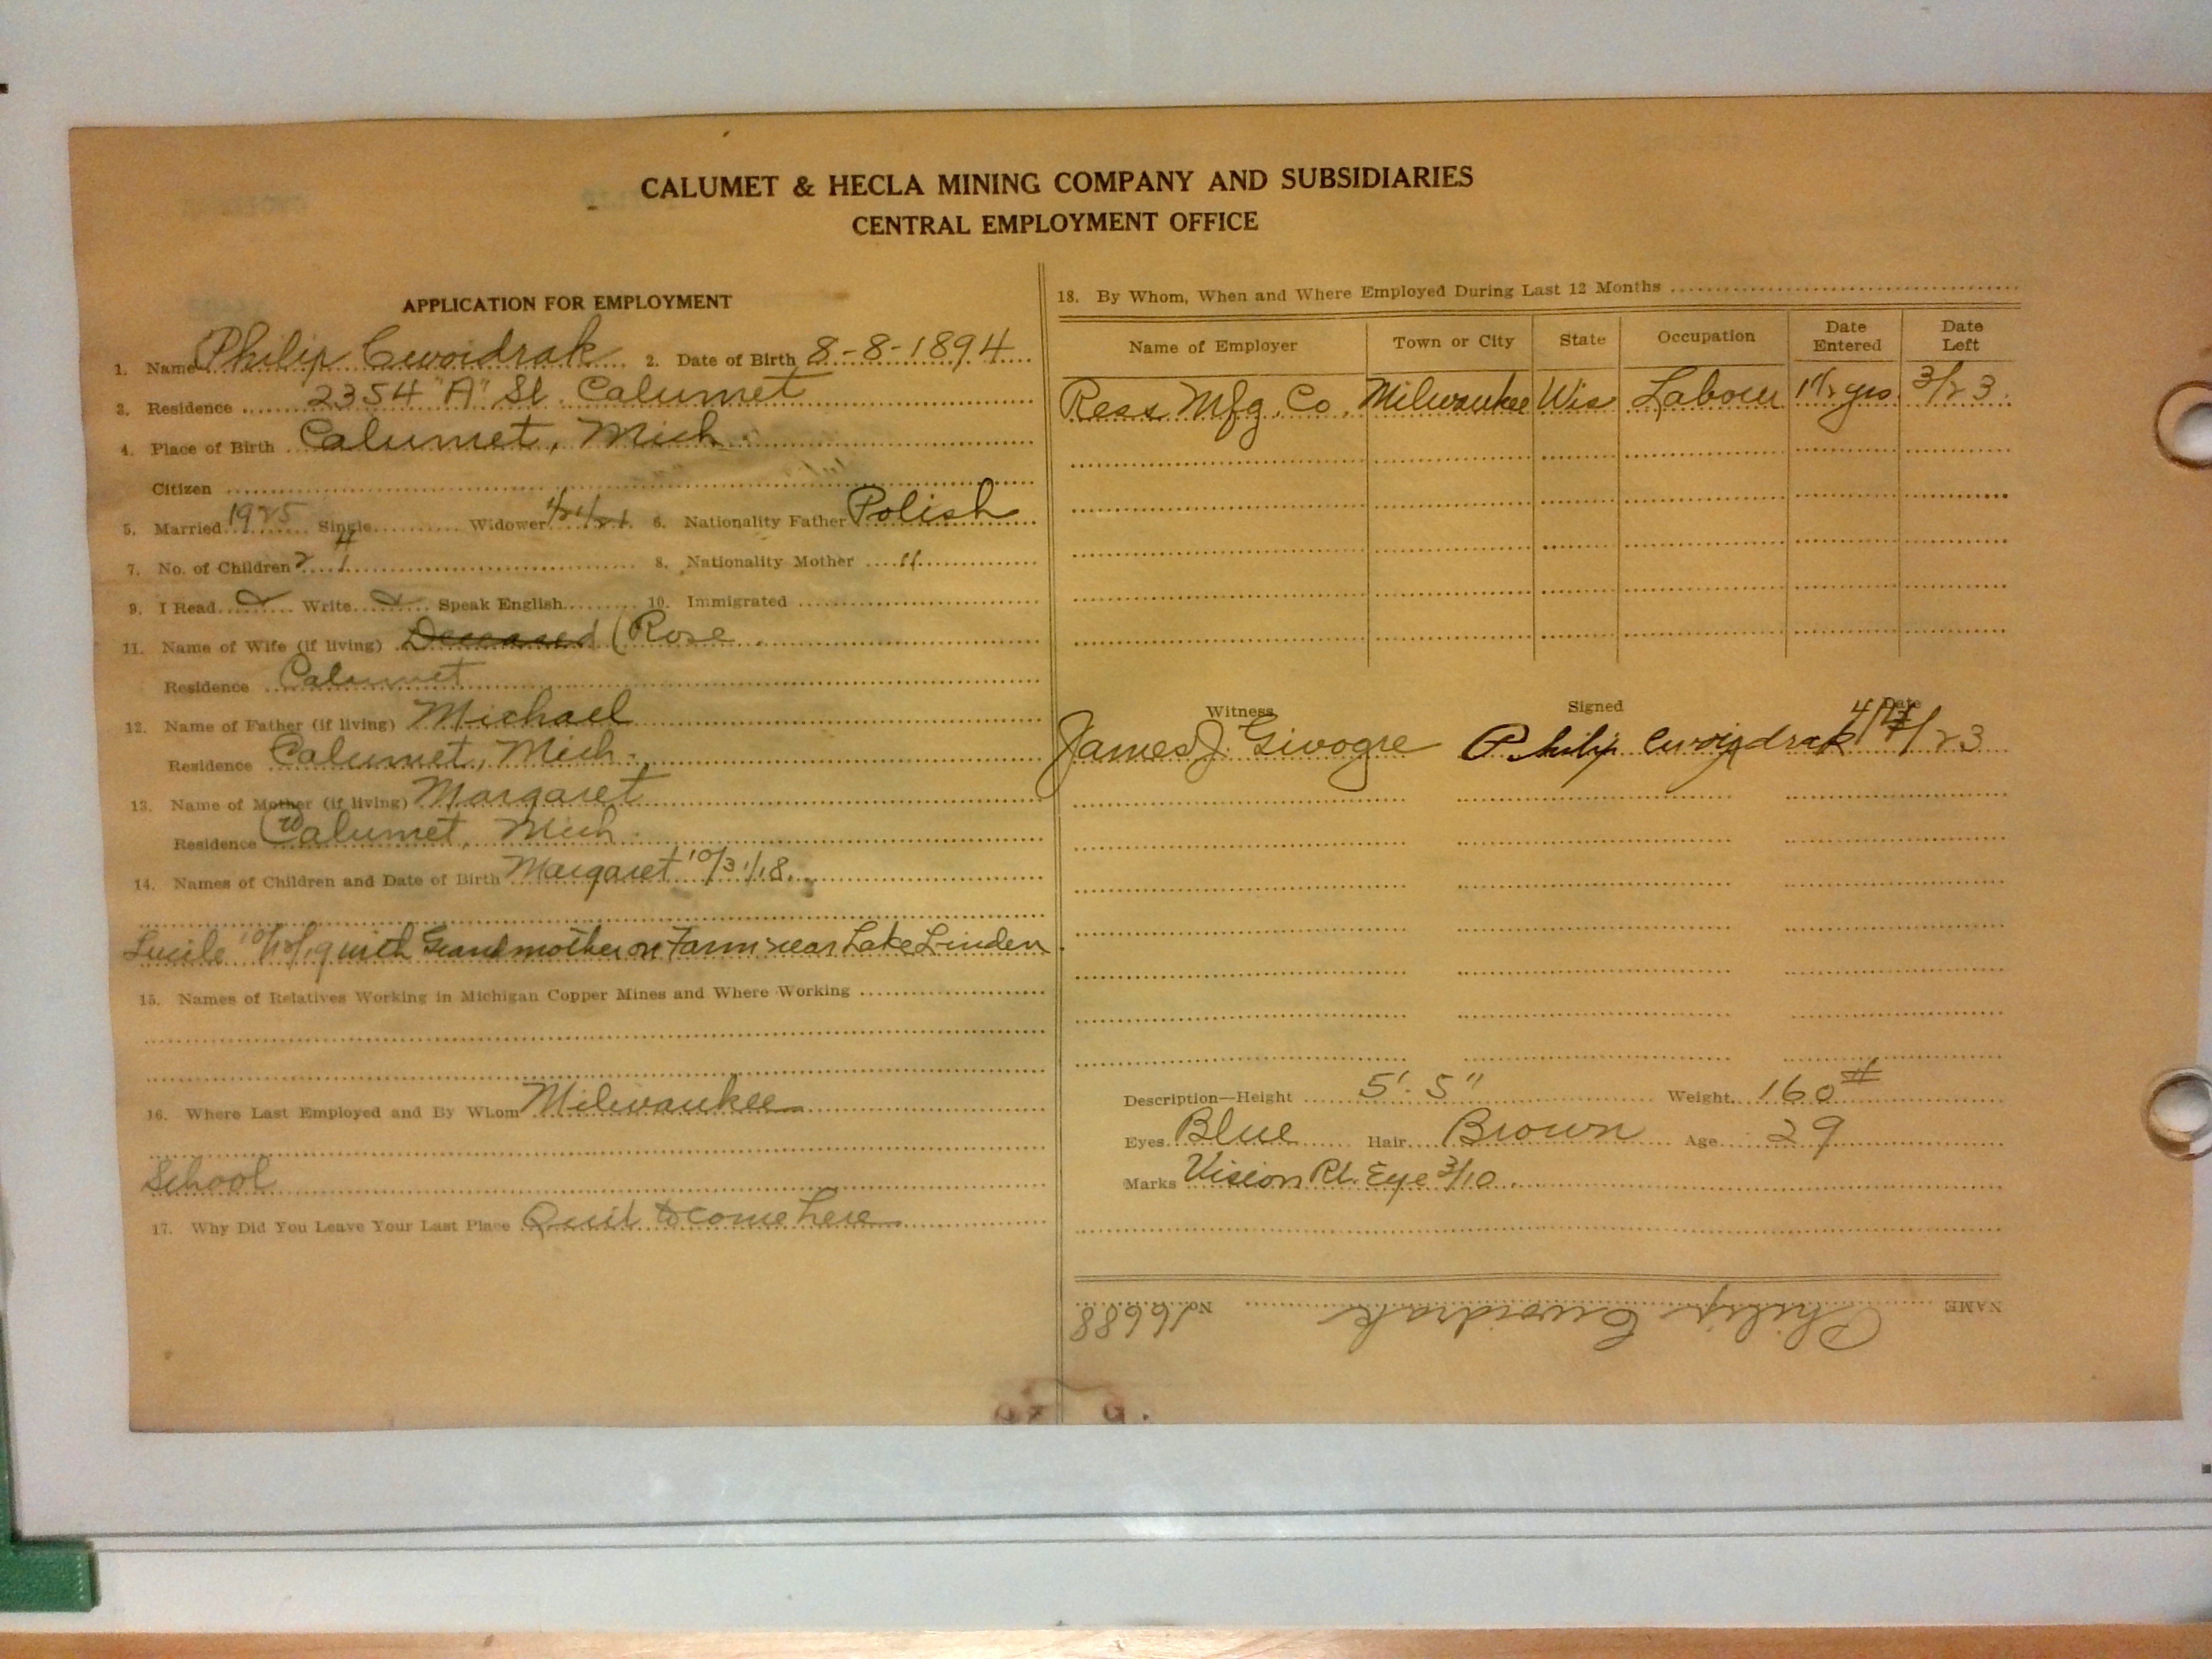 CALUMET & HECLA MINING COMPANY AND SUBSIDIARIES
CENTRAL EMPLOYMENT OFFICE
APPLICATION FOR EMPLOYMENT
1. Name Philip Cwoidrak 2. Date of Birth 8-8-1894
3. Residence 2354 "A" St. Calumet
4. Place of Birth Calumet, Mich.
Citizen
5. Married 1925 Single Widower 6. Nationality Father Polish
7. No. of Children 2 8. Nationality Mother "
9. I Read Write Speak English 10. Immigrated
11. Name of Wife (if living) Deceased (Rose
Residence Calumet
12. Name of Father (if living) Michael
Residence Calumet, Mich.
13. Name of Mother (if living) Margaret
Residence Calumet, Mich.
14. Names of Children and Date of Birth Margaret 10/31/18.
Lucile with Grandmother on Farm near Lake Linden
15. Names of Relatives Working in Michigan Copper Mines and Where Working
16. Where Last Employed and By Whom Milwaukee
School
17. Why Did You Leave Your Last Place Quit to come here
18. By Whom, When and Where Employed During Last 12 Months
Name of Employer Town or City State Occupation Date Entered Date Left
Ress Mfg. Co. Milwaukee Wis Labour 1 1/2 yrs. 3/23.
Witness Signed Date
James J. Givogre Philip Cwoydrak /23
Description—Height 5'. 5" Weight 160 #
Eyes Blue Hair Brown Age 29
Marks Vision Rt. Eye 3/10.
NAME Philip Cwoidrak No. 16688